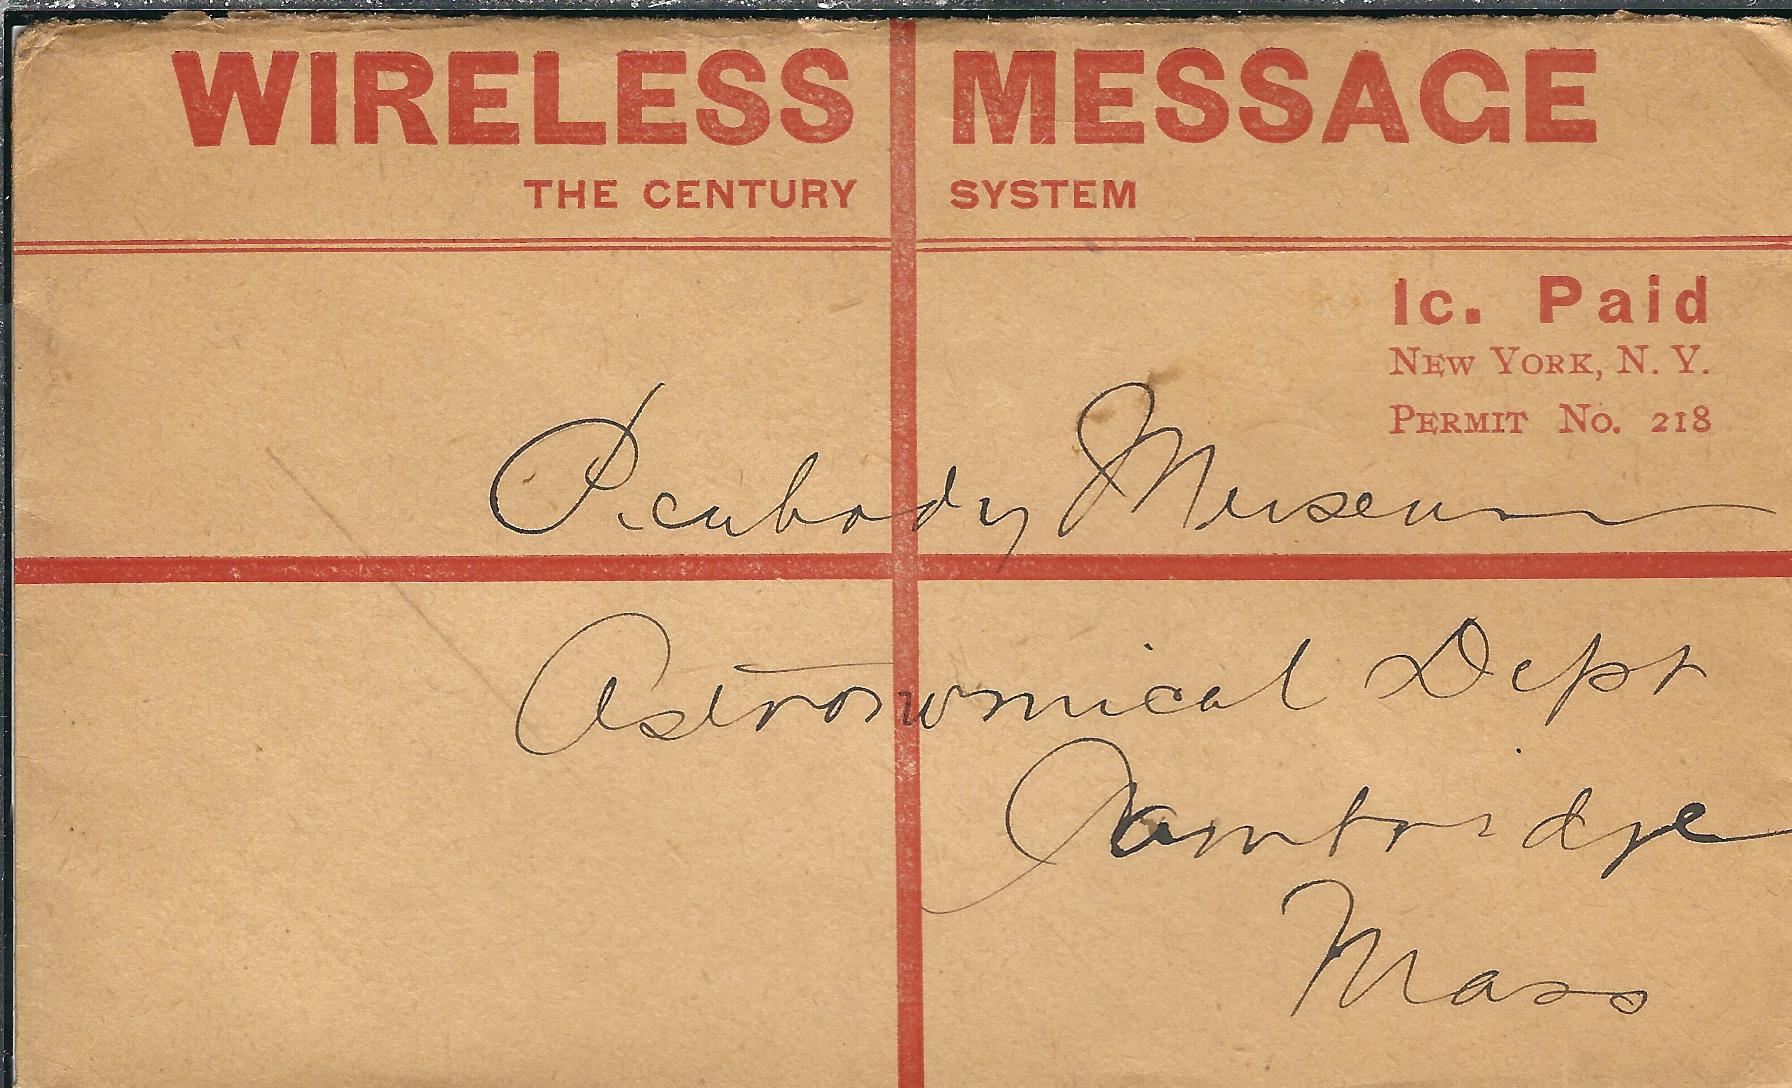 WIRELESS MESSAGE
THE CENTURY SYSTEM
1c. Paid
NEW YORK, N. Y.
PERMIT No. 218
Peabody Museum
Astronomical Dept
Cambridge
Mass